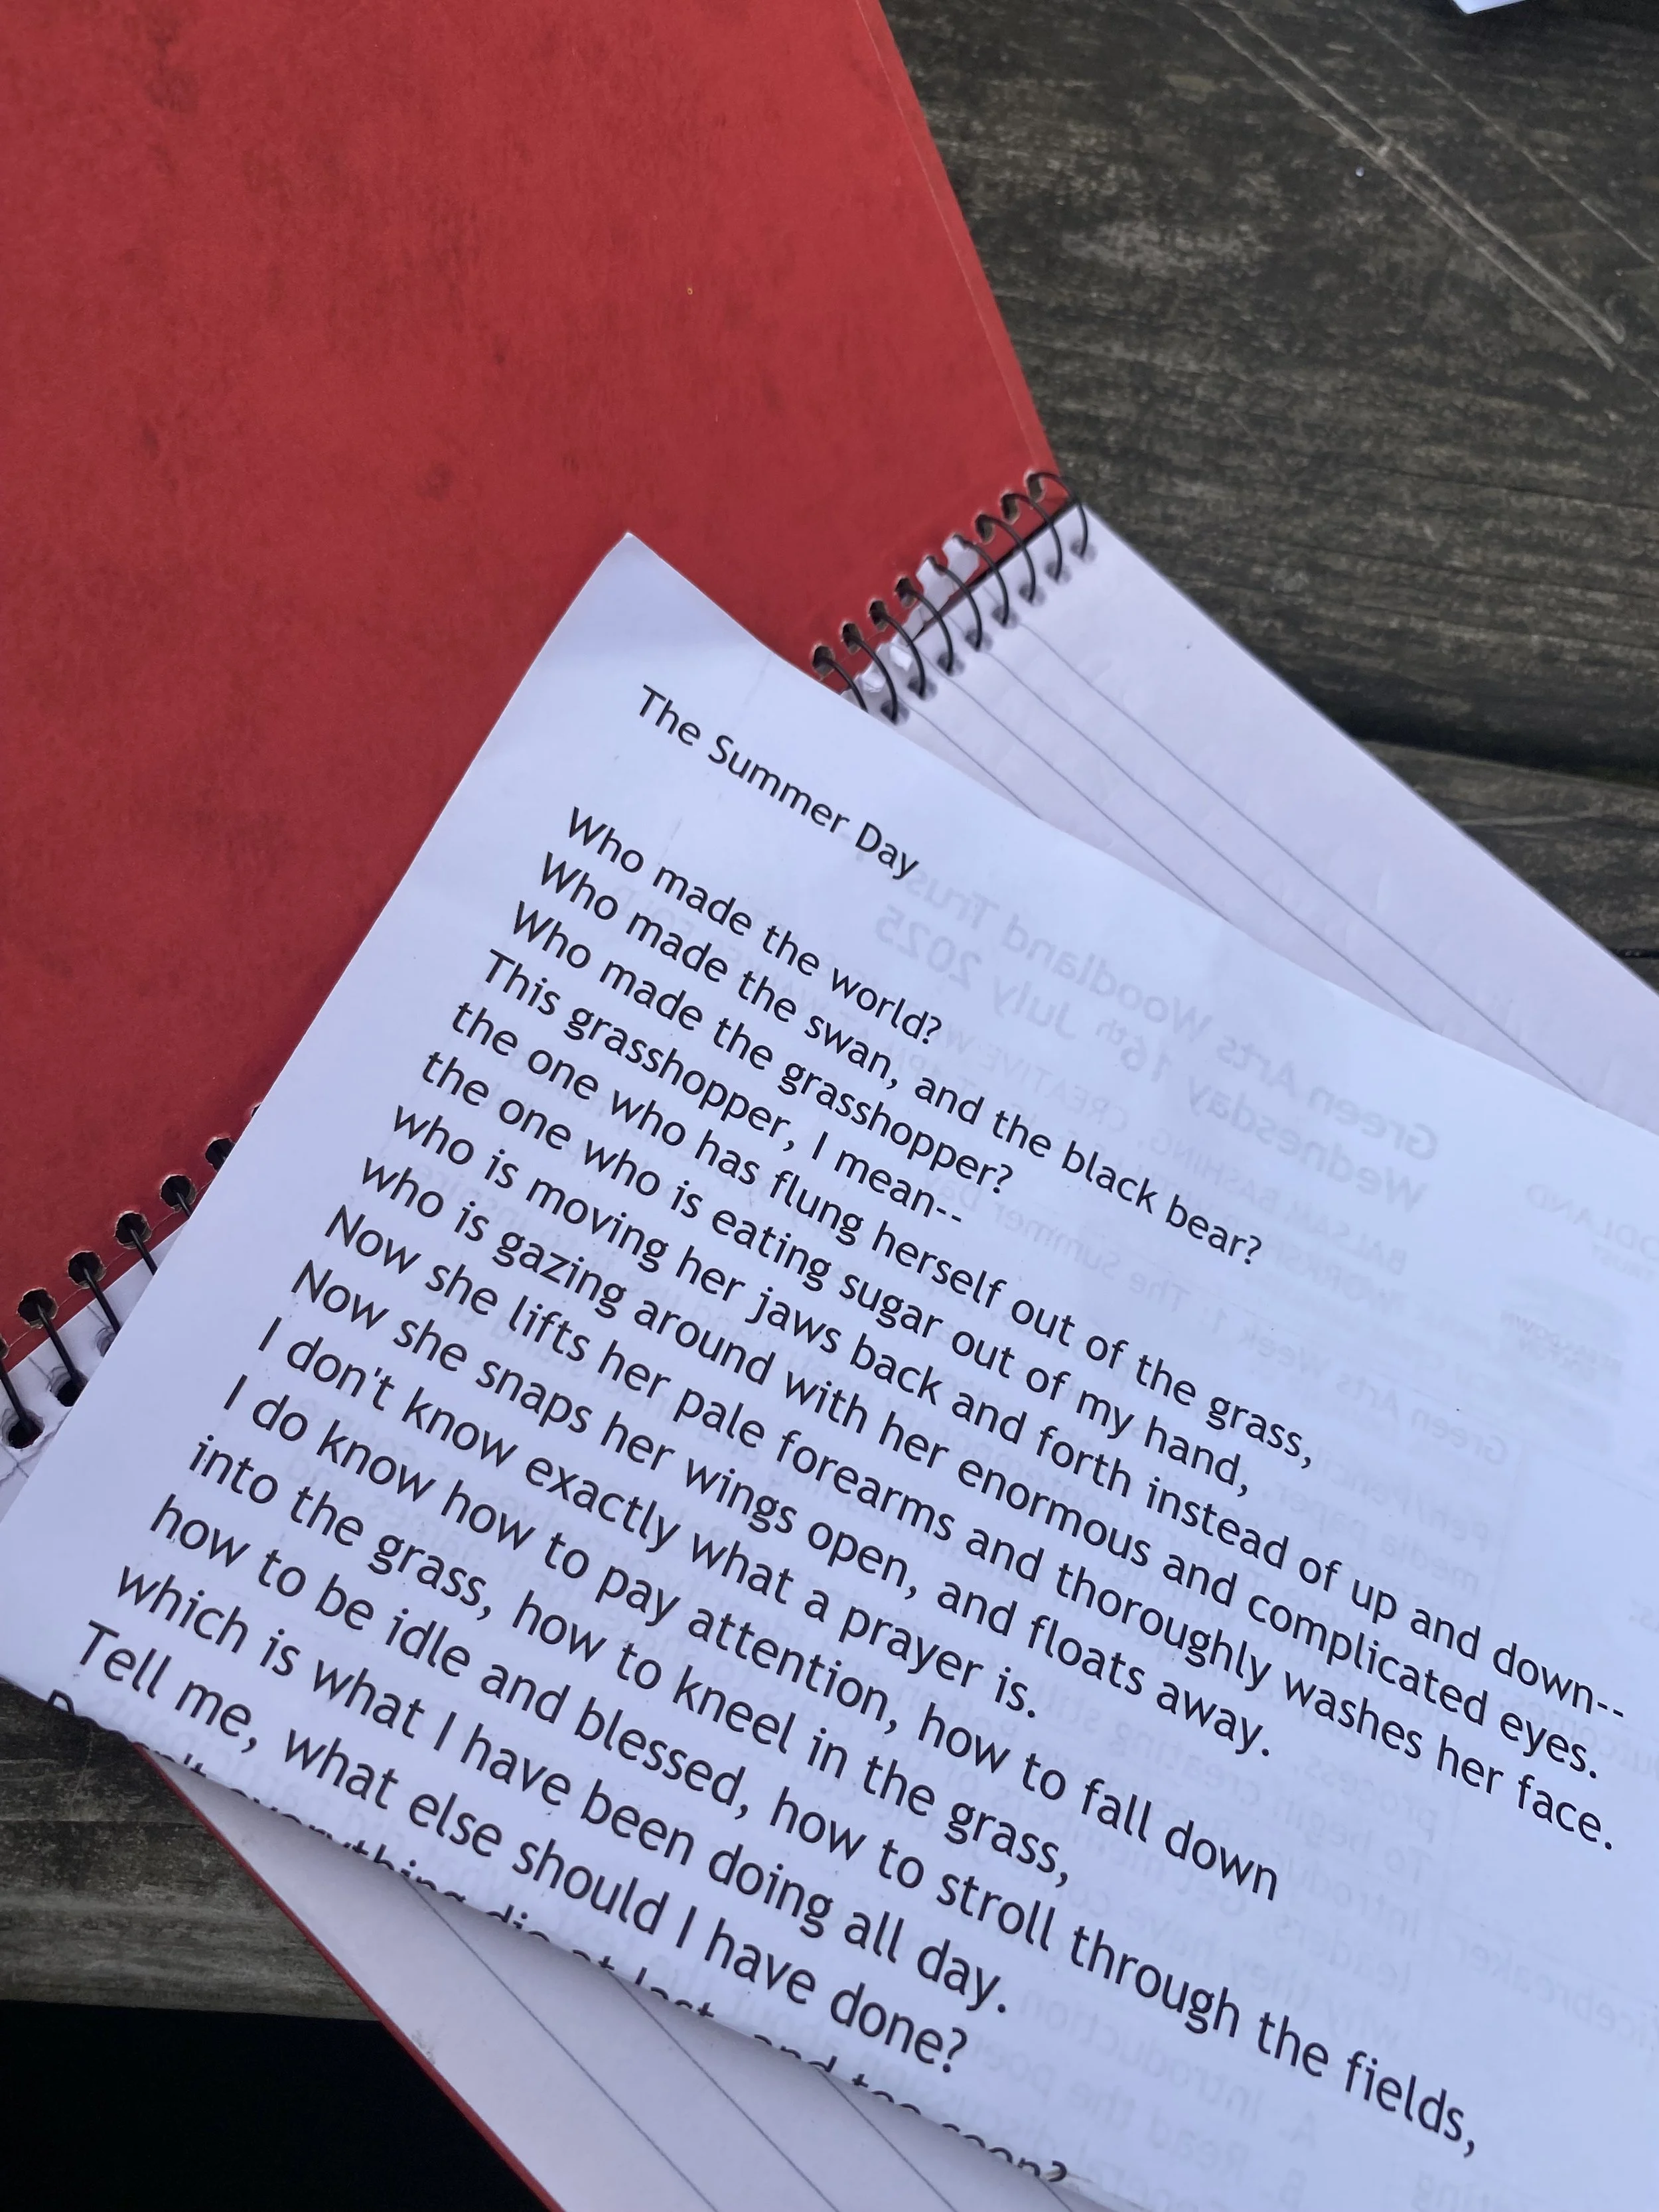 The Summer Day
Who made the world?
Who made the swan, and the black bear?
Who made the grasshopper?
This grasshopper, I mean--
the one who has flung herself out of the grass,
the one who is eating sugar out of my hand,
who is moving her jaws back and forth instead of up and down--
who is gazing around with her enormous and complicated eyes.
Now she lifts her pale forearms and thoroughly washes her face.
Now she snaps her wings open, and floats away.
I don't know exactly what a prayer is.
I do know how to pay attention, how to fall down
into the grass, how to kneel in the grass,
how to be idle and blessed, how to stroll through the fields,
which is what I have been doing all day.
Tell me, what else should I have done?
Doesn't everything die at last, and too soon?
Green Arts Woodland Trust
Wednesday 16th July 2025